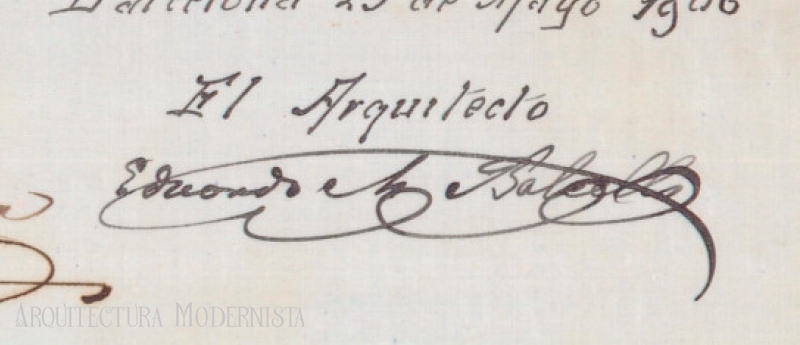 Barcelona 25 de Mayo 1906
El Arquitecto
Eduardo M Balcells
ARQUITECTURA MODERNISTA